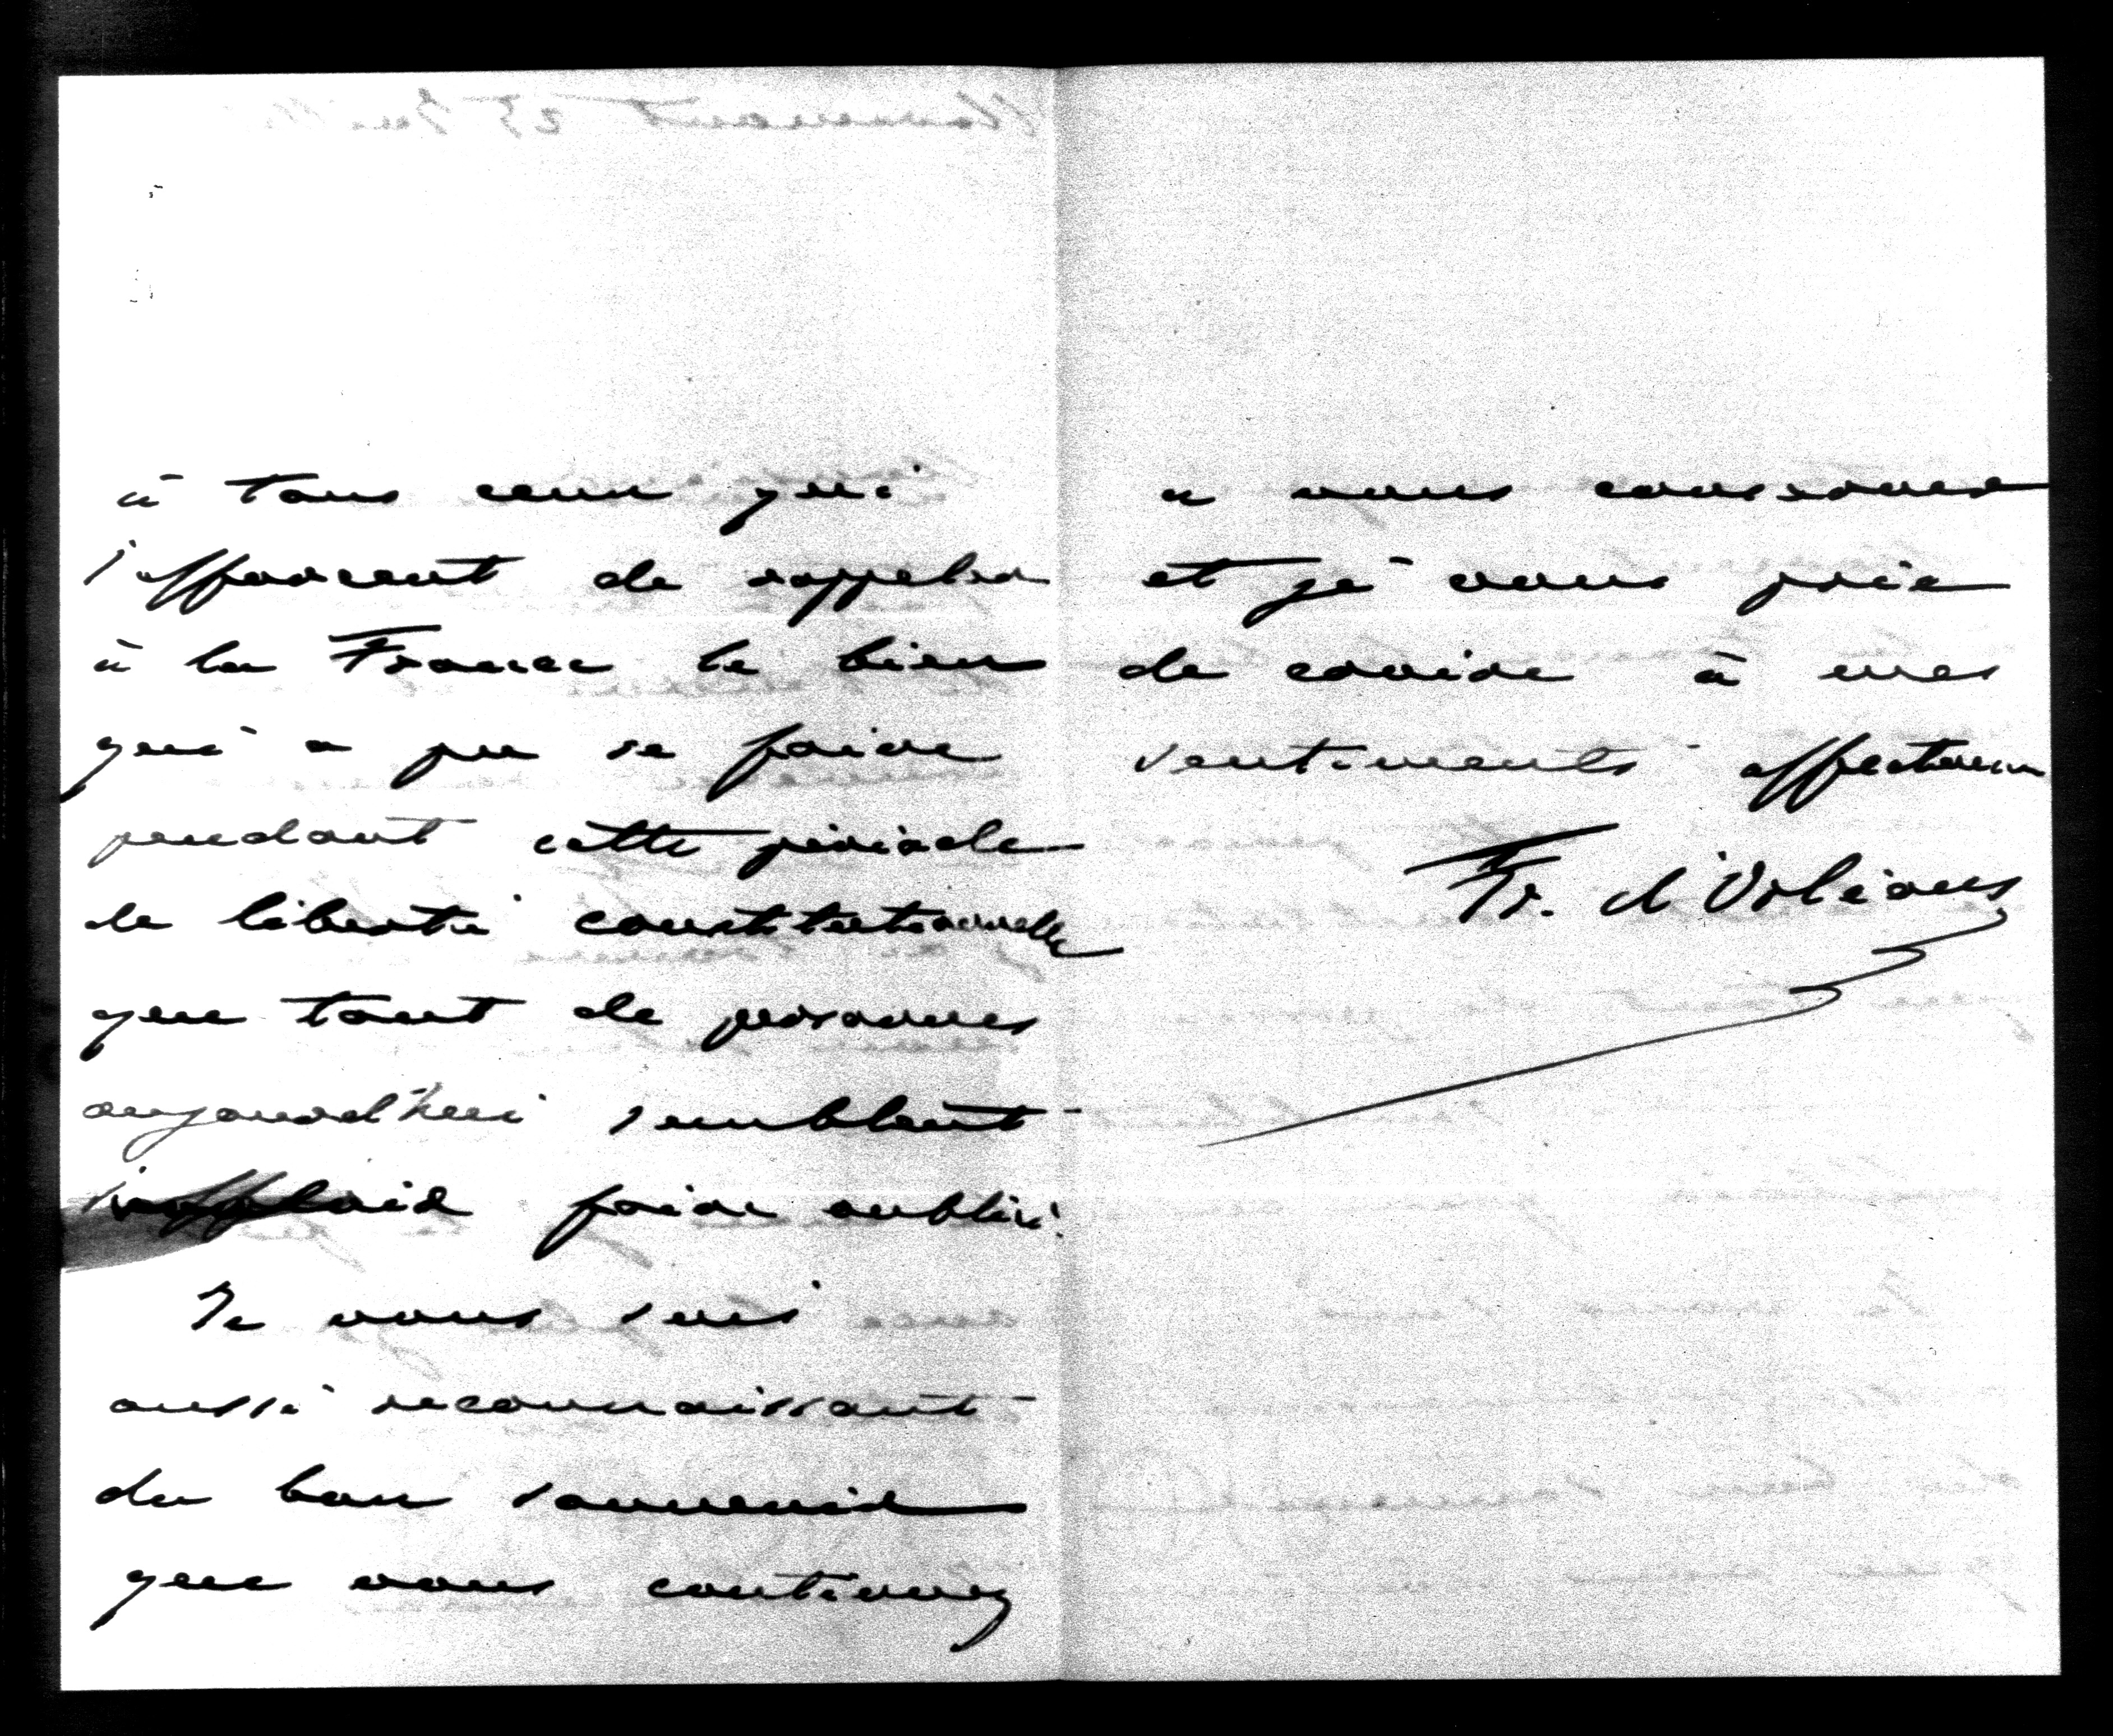 à tous ceux qui
s'efforcent de rappeler
à la France le bien
qui a pu se faire
pendant cette période
de liberté constitutionnelle
que tant de personnes
aujourd'hui semblent
faire oublier.
Je vous suis
aussi reconnaissant
du bon souvenir
que vous continuez
a nous conserver
et je vous prie
de croire à mes
sentiments affectueux
Fr. d'Orléans